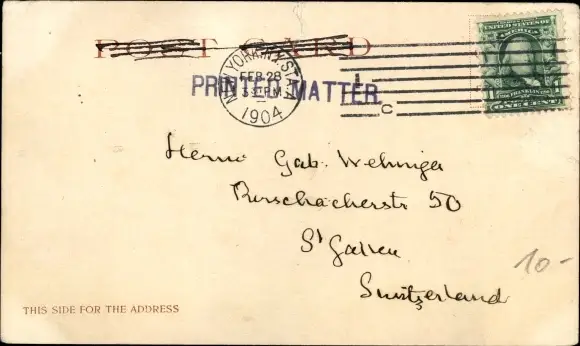 POST CARD
PRINTED MATTER
NEW YORK, N.Y. STA. L
FEB 28
3 PM
1904
L
C
UNITED STATES OF AMERICA
1
FRANKLIN
ONE CENT
Herrn Gab. Wehinger
Rorschacherstr 50
St Gallen
Switzerland
10-
THIS SIDE FOR THE ADDRESS